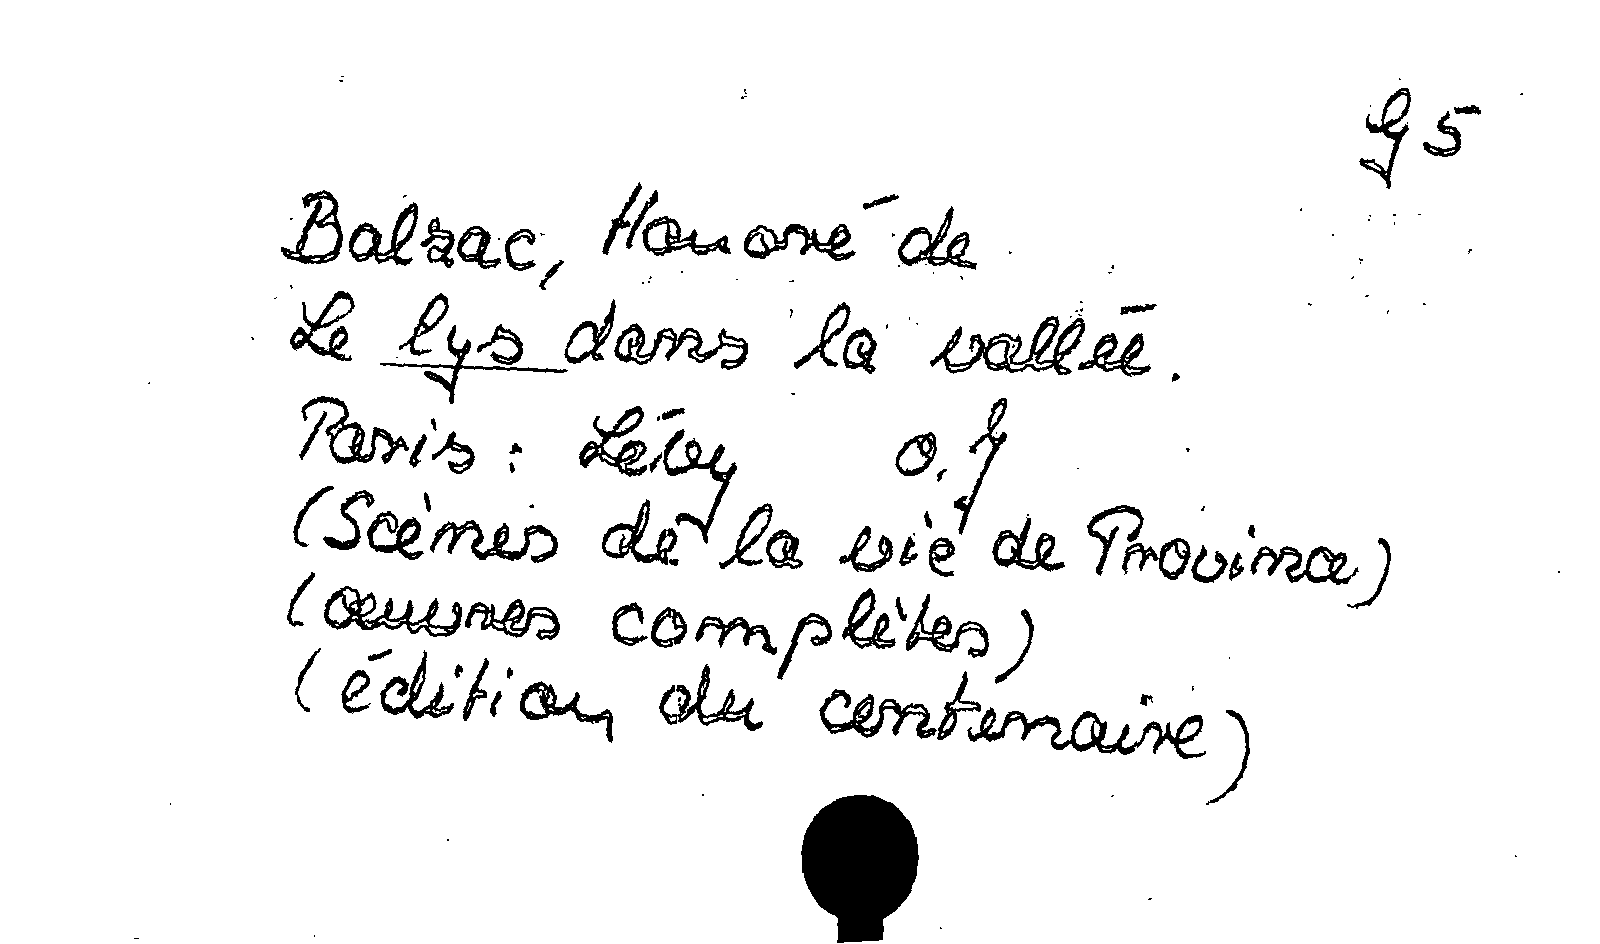 G 5
Balzac, Honoré de
Le lys dans la vallée.
Paris: Lévy o. J
(Scènes de la vie de Province)
(œuvres complètes)
(édition du centenaire)